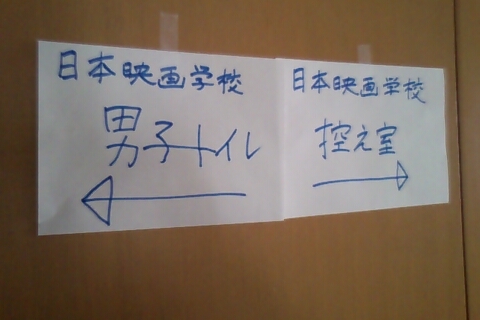 日本映画学校
男子トイレ
日本映画学校
控え室